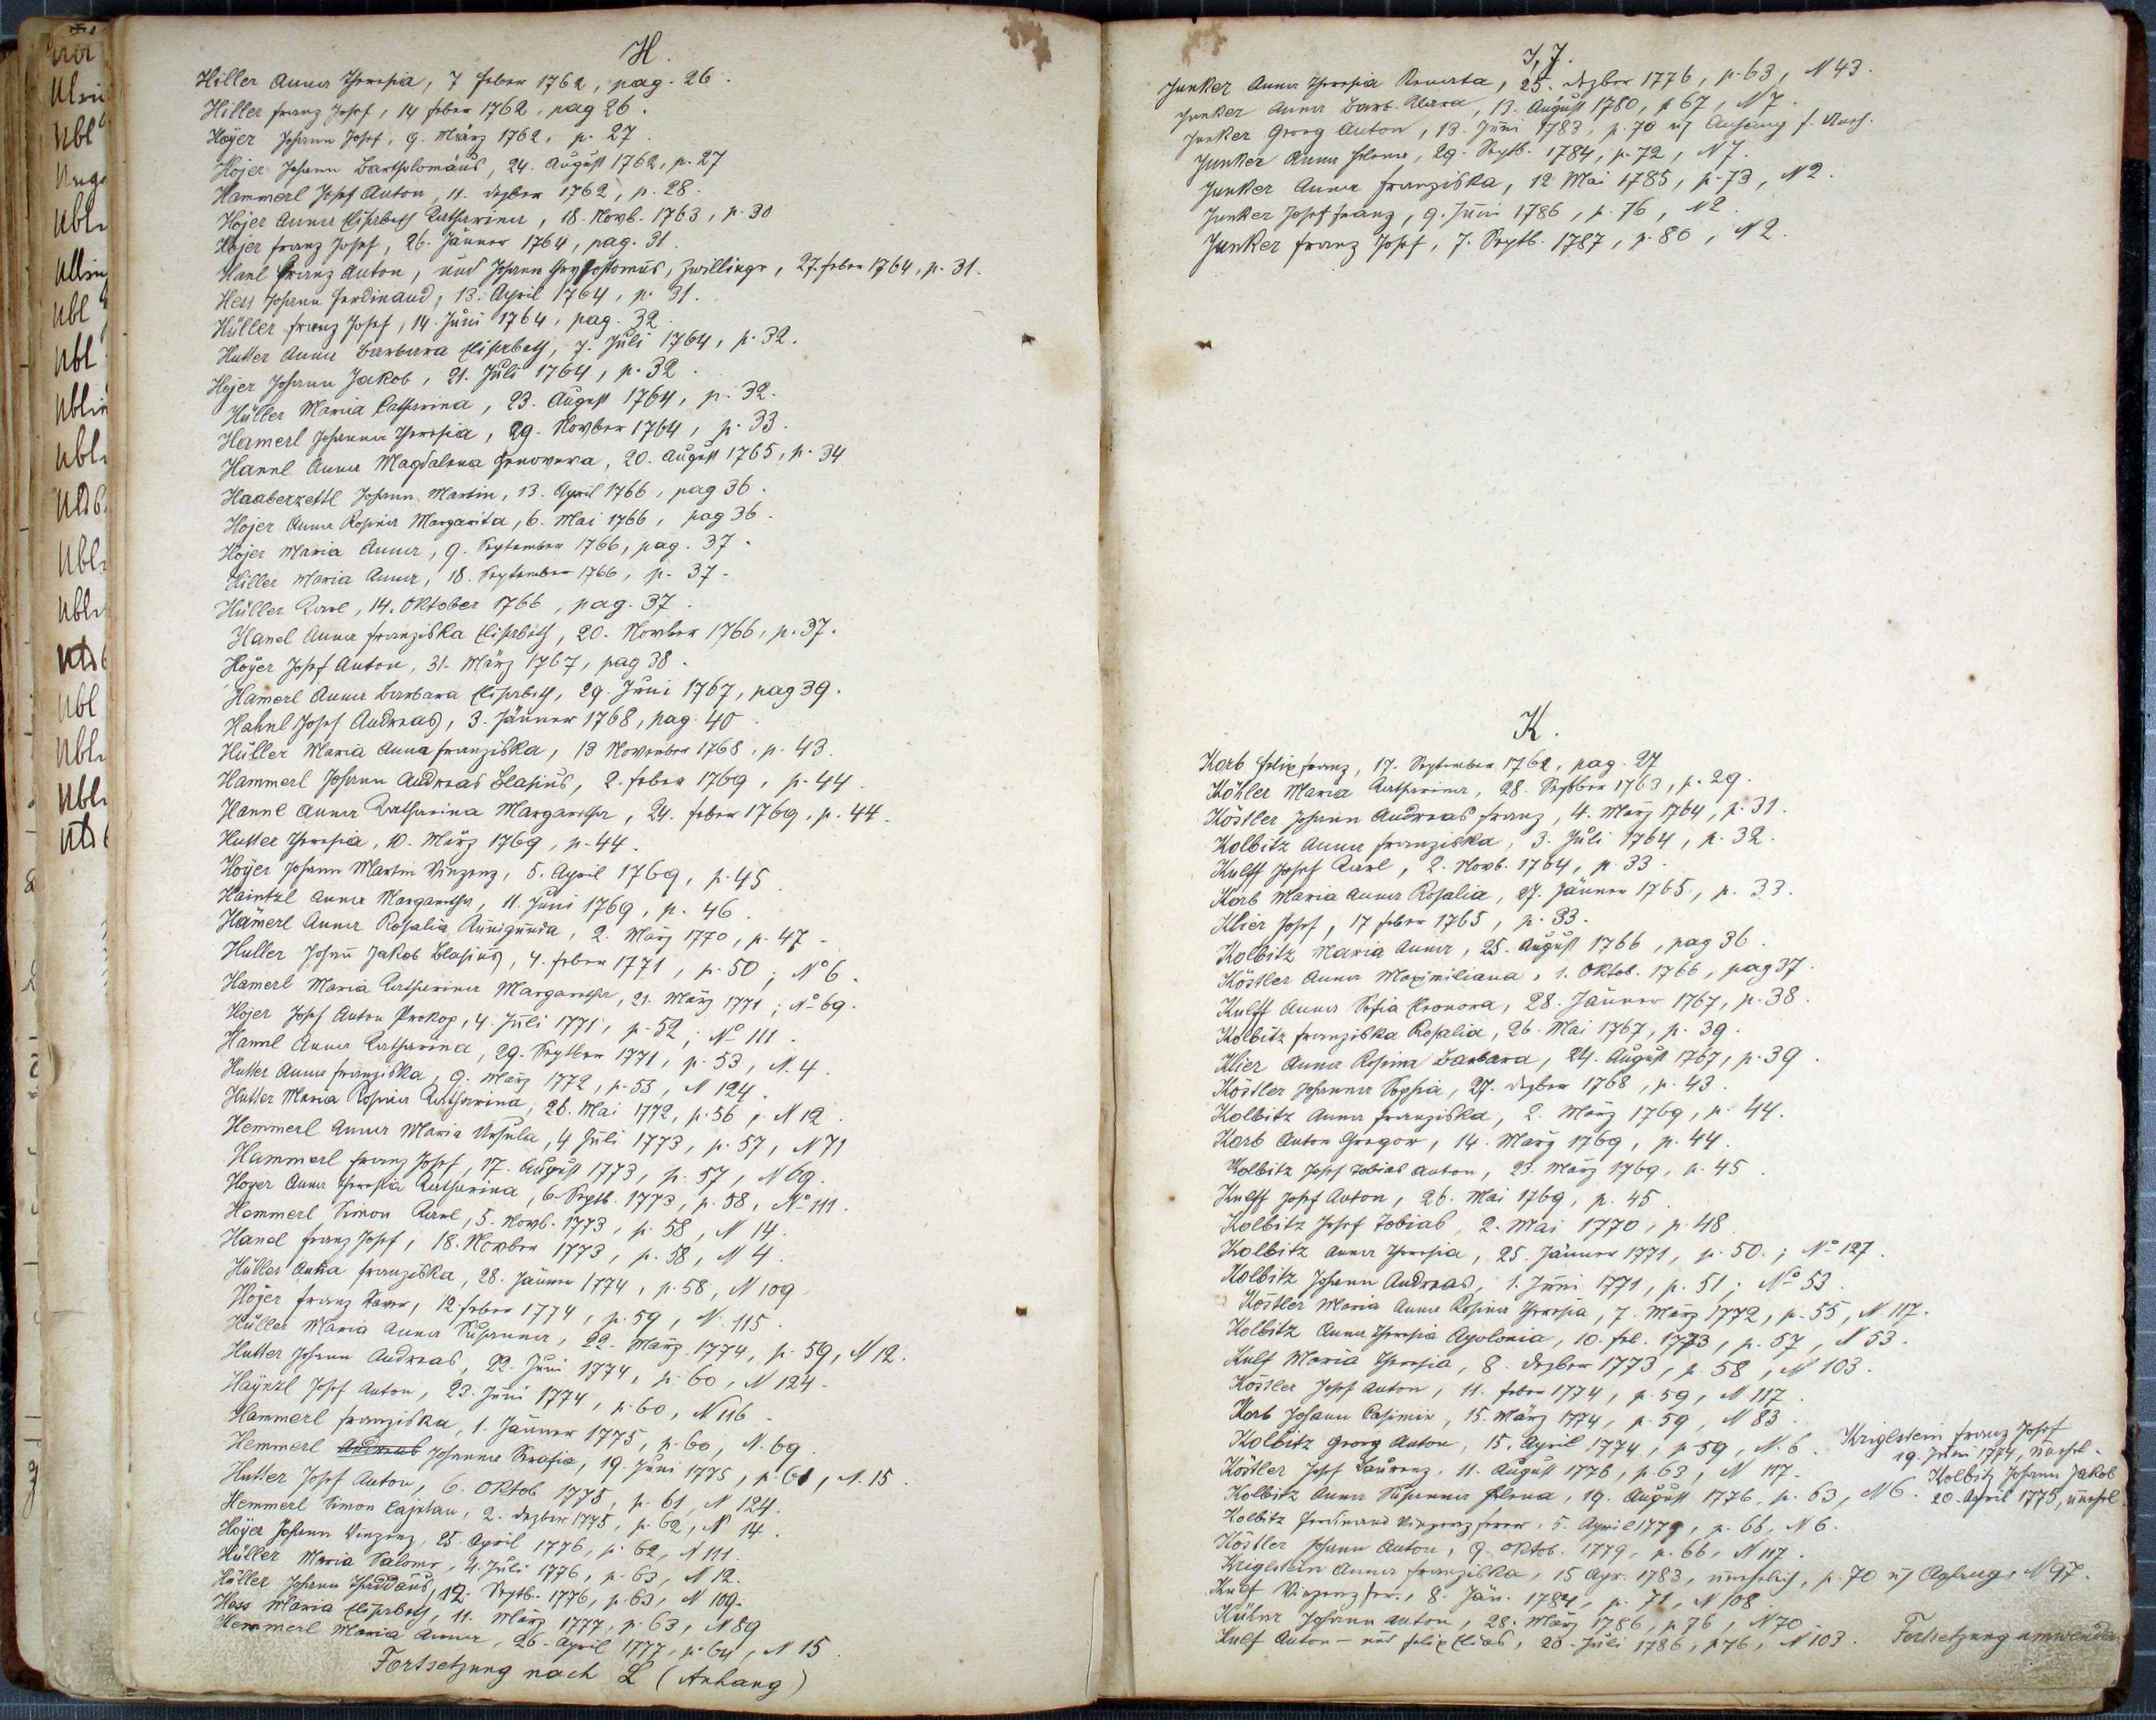 H.
Hiller Anna Theresia, 7 feber 1762, pag. 26.
Hiller Franz Josef, 14 feber 1762, pag 26.
Hoÿer Johann Josef, 9. März 1762, p. 27
Hojer Johann Bartholomäus, 24. August 1762, p. 27
Hammerl Josef Anton, 11. Dezber 1762, p. 28.
Hojer Anna Elisabeth Katharina, 18. Novb. 1763, p. 30
Hojer Franz Josef, 26. Jänner 1764, pag. 31.
Hanl Franz Anton, und Johann Chrysostomus, Zwillinge, 27. feber 1764, p. 31.
Hess Johann Ferdinand, 13. April 1764, p. 31.
Hüller Franz Josef, 14. Juni 1764, pag. 32
Hutter Anna Barbara Elisabeth, 7. Juli 1764, p. 32.
Hojer Johann Jakob, 21. Juli 1764, p. 32.
Hüller Maria Catharina, 23. August 1764, p. 32.
Hamerl Johanna Theresia, 29. Novber 1764, p. 33.
Hannl Anna Magdalena Genovева, 20. August 1765, p. 34
Haaberzettl Johann Martin, 13. April 1766, pag 36.
Hojer Anna Rosina Margarita, 6. Mai 1766, pag 36.
Hojer Maria Anna, 9. September 1766, pag. 37.
Hiller Maria Anna, 18. September 1766, p. 37.
Hüller Karl, 14. Oktober 1766, pag. 37.
Hanel Anna Franziska Elisabeth, 20. Novber 1766, p. 37.
Hoÿer Josef Anton, 31. März 1767, pag 38.
Hamerl Anna Barbara Elisabeth, 29. Juni 1767, pag 39.
Hahnl Josef Andreas, 3. Jänner 1768, pag. 40.
Hüller Maria Anna Franziska, 13 November 1768, p. 43.
Hammerl Johann Andreas Blasius, 2. feber 1769, p. 44.
Hannl Anna Katharina Margaretha, 24. feber 1769, p. 44.
Hutter Theresia, 10. März 1769, p. 44.
Hoÿer Johann Martin Vinzenz, 5. April 1769, p. 45
Haintzl Anna Margaretha, 11. Juni 1769, p. 46.
Hamerl Anna Rosalia Kunigunda, 2. März 1770, p. 47.
Huller Johann Jakob Blasius, 4. feber 1771, p. 50; No 6.
Hamerl Maria Katharina Margaretha, 21. März 1771; No 69.
Hojer Josef Anton Prokop, 4. Juli 1771, p. 52; No 111.
Hannl Anna Katharina, 29. Septber 1771, p. 53, N. 4.
Hutter Anna Franziska, 9. März 1772, p. 55, N 124.
Hutter Maria Rosina Katharina, 26. Mai 1772, p. 56, N 12.
Hemmerl Anna Maria Ursula, 4 Juli 1773, p. 57, N 71
Hammerl Franz Josef, 17. August 1773, p. 57, N 69.
Hoyer Anna Theresia Katharina, 6. Septb. 1773, p. 58, No 111.
Hemmerl Simon Karl, 5. Novb. 1773, p. 58, N 14.
Hanel Franz Josef, 18. Novber 1773, p. 58, N 4.
Hüller Anna Franziska, 28. Jänner 1774, p. 58, N 109
Hojer Franz Xaver, 12. feber 1774, p. 59, N. 115.
Hüller Maria Anna Susanna, 22. März 1774, p. 59, N 12.
Hutter Johann Andreas, 22. Juni 1774, p. 60, N 124.
Haÿnzl Josef Anton, 23. Juni 1774, p. 60, N 116.
Hammerl Franziska, 1. Jänner 1775, p. 60, N. 69.
Hemmerl Andreas Johanna Serafia, 19. Juni 1775, p. 61, N. 15.
Hutter Josef Anton, 6. Oktob 1775, p. 61, N 124.
Hemmerl Simon Cajetan, 2. Dezber 1775, p. 62, N 14.
Hoÿer Johann Vinzenz, 25. April 1776, p. 62, N 111.
Hüller Maria Salome, 4. Juli 1776, p. 63, N 12.
Hüller Johann Thaddäus, 12. Septb. 1776, p. 63, N 109.
Hess Maria Elisabeth, 11. März 1777, p. 63, N 89
Hemmerl Maria Anna, 26. April 1777, p. 64, N 15
Fortsetzung nach L (Anhang)
I, J.
Junker Anna Theresia Renata, 25. Dezber 1776, p. 63, N 43.
Junker Anna Barb. Klara, 13. August 1780, p 67, N 7.
Junker Georg Anton, 13. Juni 1783, p. 70
Junker Anna Helena, 29. Septb. 1784, p. 72, N 7.
Junker Anna Franziska, 12 Mai 1785, p. 73, N 2.
Junker Josef Franz, 9. Juni 1786, p. 76, N 2.
Junker Franz Josef, 7. Septb. 1787, p. 80, N 2.
K.
Korb Felix Franz, 17. September 1762, pag. 27
Köhler Maria Katharina, 28. Septber 1763, p. 29.
Köstler Johann Andreas Franz, 4. März 1764, p. 31.
Kolbitz Anna Franziska, 3. Juli 1764, p. 32.
Kulff Josef Karl, 2. Novb. 1764, p. 33.
Korb Maria Anna Rosalia, 27. Jänner 1765, p. 33.
Klier Josef, 17 feber 1765, p. 33.
Kolbitz Maria Anna, 25. August 1766, pag 36.
Köstler Anna Maximiliana, 1. Oktob. 1766, pag 37.
Kulff Anna Sofia Eleonora, 28. Jänner 1767, p. 38.
Kolbitz Franziska Rosalia, 26. Mai 1767, p. 39.
Klier Anna Rosina Barbara, 24. August 1767, p. 39.
Köstler Johanna Sophia, 27. Dezber 1768, p. 43.
Kolbitz Anna Franziska, 2. März 1769, p. 44.
Korb Anton Gregor, 14. März 1769, p. 44.
Kolbitz Josef Tobias Anton, 23. März 1769, p. 45.
Kulff Josef Anton, 26. Mai 1769, p. 45
Kolbitz Josef Tobias, 2. Mai 1770, p. 48
Kolbitz Anna Theresia, 25. Jänner 1771, p. 50.; No 127.
Kolbitz Johann Andreas, 1. Juni 1771, p. 51; No 53.
Köstler Maria Anna Rosina Theresia, 7. März 1772, p. 55, N. 117.
Kolbitz Anna Theresia Apolonia, 10. feb. 1773, p. 57, N 53.
Kulf Maria Theresia, 8. Dezber 1773, p. 58, N 103.
Köstler Josef Anton, 11. feber 1774, p. 59, N 117.
Korb Johann Casimir, 15. März 1774, p. 59, N 83.
Kolbitz Georg Anton, 15. April 1774, p. 59, N. 6.
Kriglstein Franz Josef
19. Juni 1774, unehel.
Köstler Josef Laurenz, 11. August 1776, p. 63, N 117.
Kolbitz Johann Jakob
20. April 1775, unehel
Kolbitz Anna Susanna Helena, 19. August 1776, p. 63, N 6.
Kolbitz Ferdinand Vinzenz, 5. April 1779, p. 66, N 6.
Köstler Johann Anton, 9. Oktob. 1779, p. 66, N 117.
Kriglstein Anna Franziska, 15 Apr. 1783, unehelich, p. 70 N 97.
Kulf Vinzenz, 8. Jän. 1784, p. 71, N 108
Kühnr Johann Anton, 28. März 1786, p 76, N 70
Kulf Anton – und Felix Elias, 20. Juli 1786, p 76, N 103.
Fortsetzung umwenden